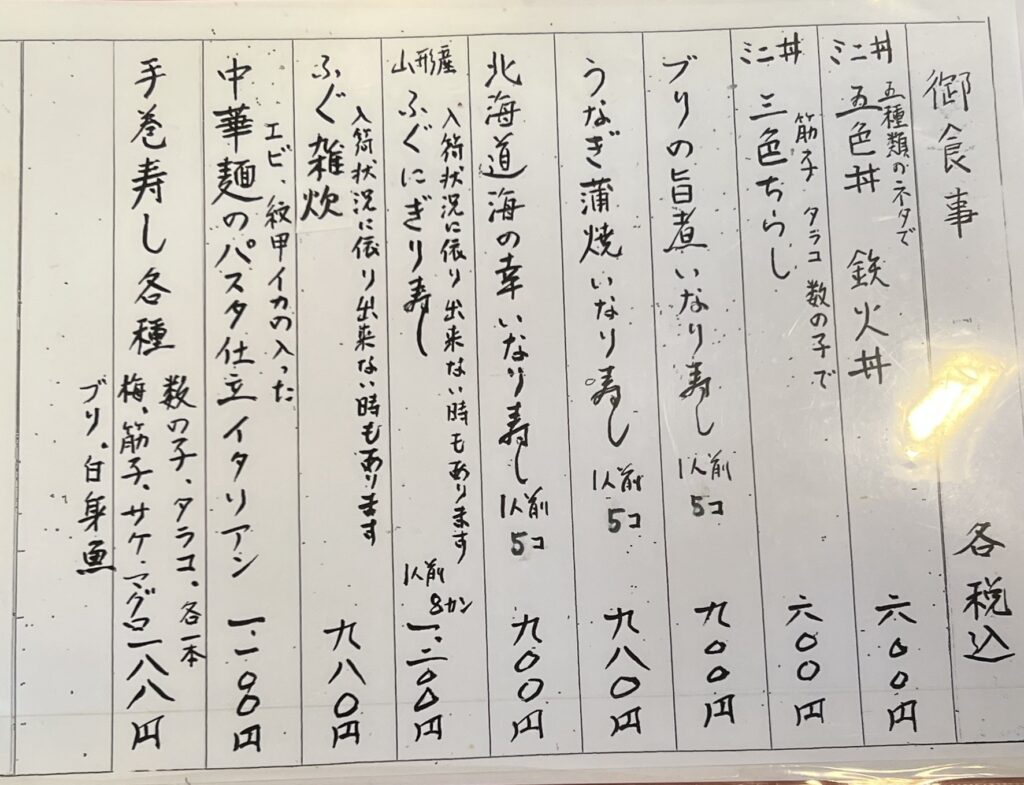 御食事 各税込
五種類のネタで
ミニ丼 五色丼 鉄火丼 六〇〇円
筋子 タラコ 数の子で
ミニ丼 三色ちらし 六〇〇円
ブリの旨煮いなり寿し 1人前 5コ 九〇〇円
うなぎ蒲焼いなり寿し 1人前 5コ 九八〇円
北海道海の幸いなり寿し 1人前 5コ 九〇〇円
入荷状況に依り出来ない時もあります
山形産 ふぐにぎり寿し 1人前 8カン 一、二〇〇円
入荷状況に依り出来ない時もあります
ふぐ雑炊 九八〇円
エビ、紋甲イカの入った
中華麺のパスタ仕立イタリアン 一、一〇〇円
手巻寿し各種
数の子、タラコ、各一本
梅、筋子、サケ、マグロ 一八八円
ブリ、白身魚